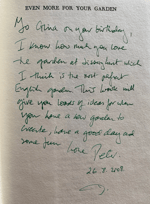 EVEN MORE FOR YOUR GARDEN
To Gina on your birthday,
I know how much you love
the garden at Sissinghurst which
I think is the most perfect
English garden. This book will
give you loads of ideas for when
you have a new garden to
create, have a good day and
some fun. Love Pete.
26.7.2008